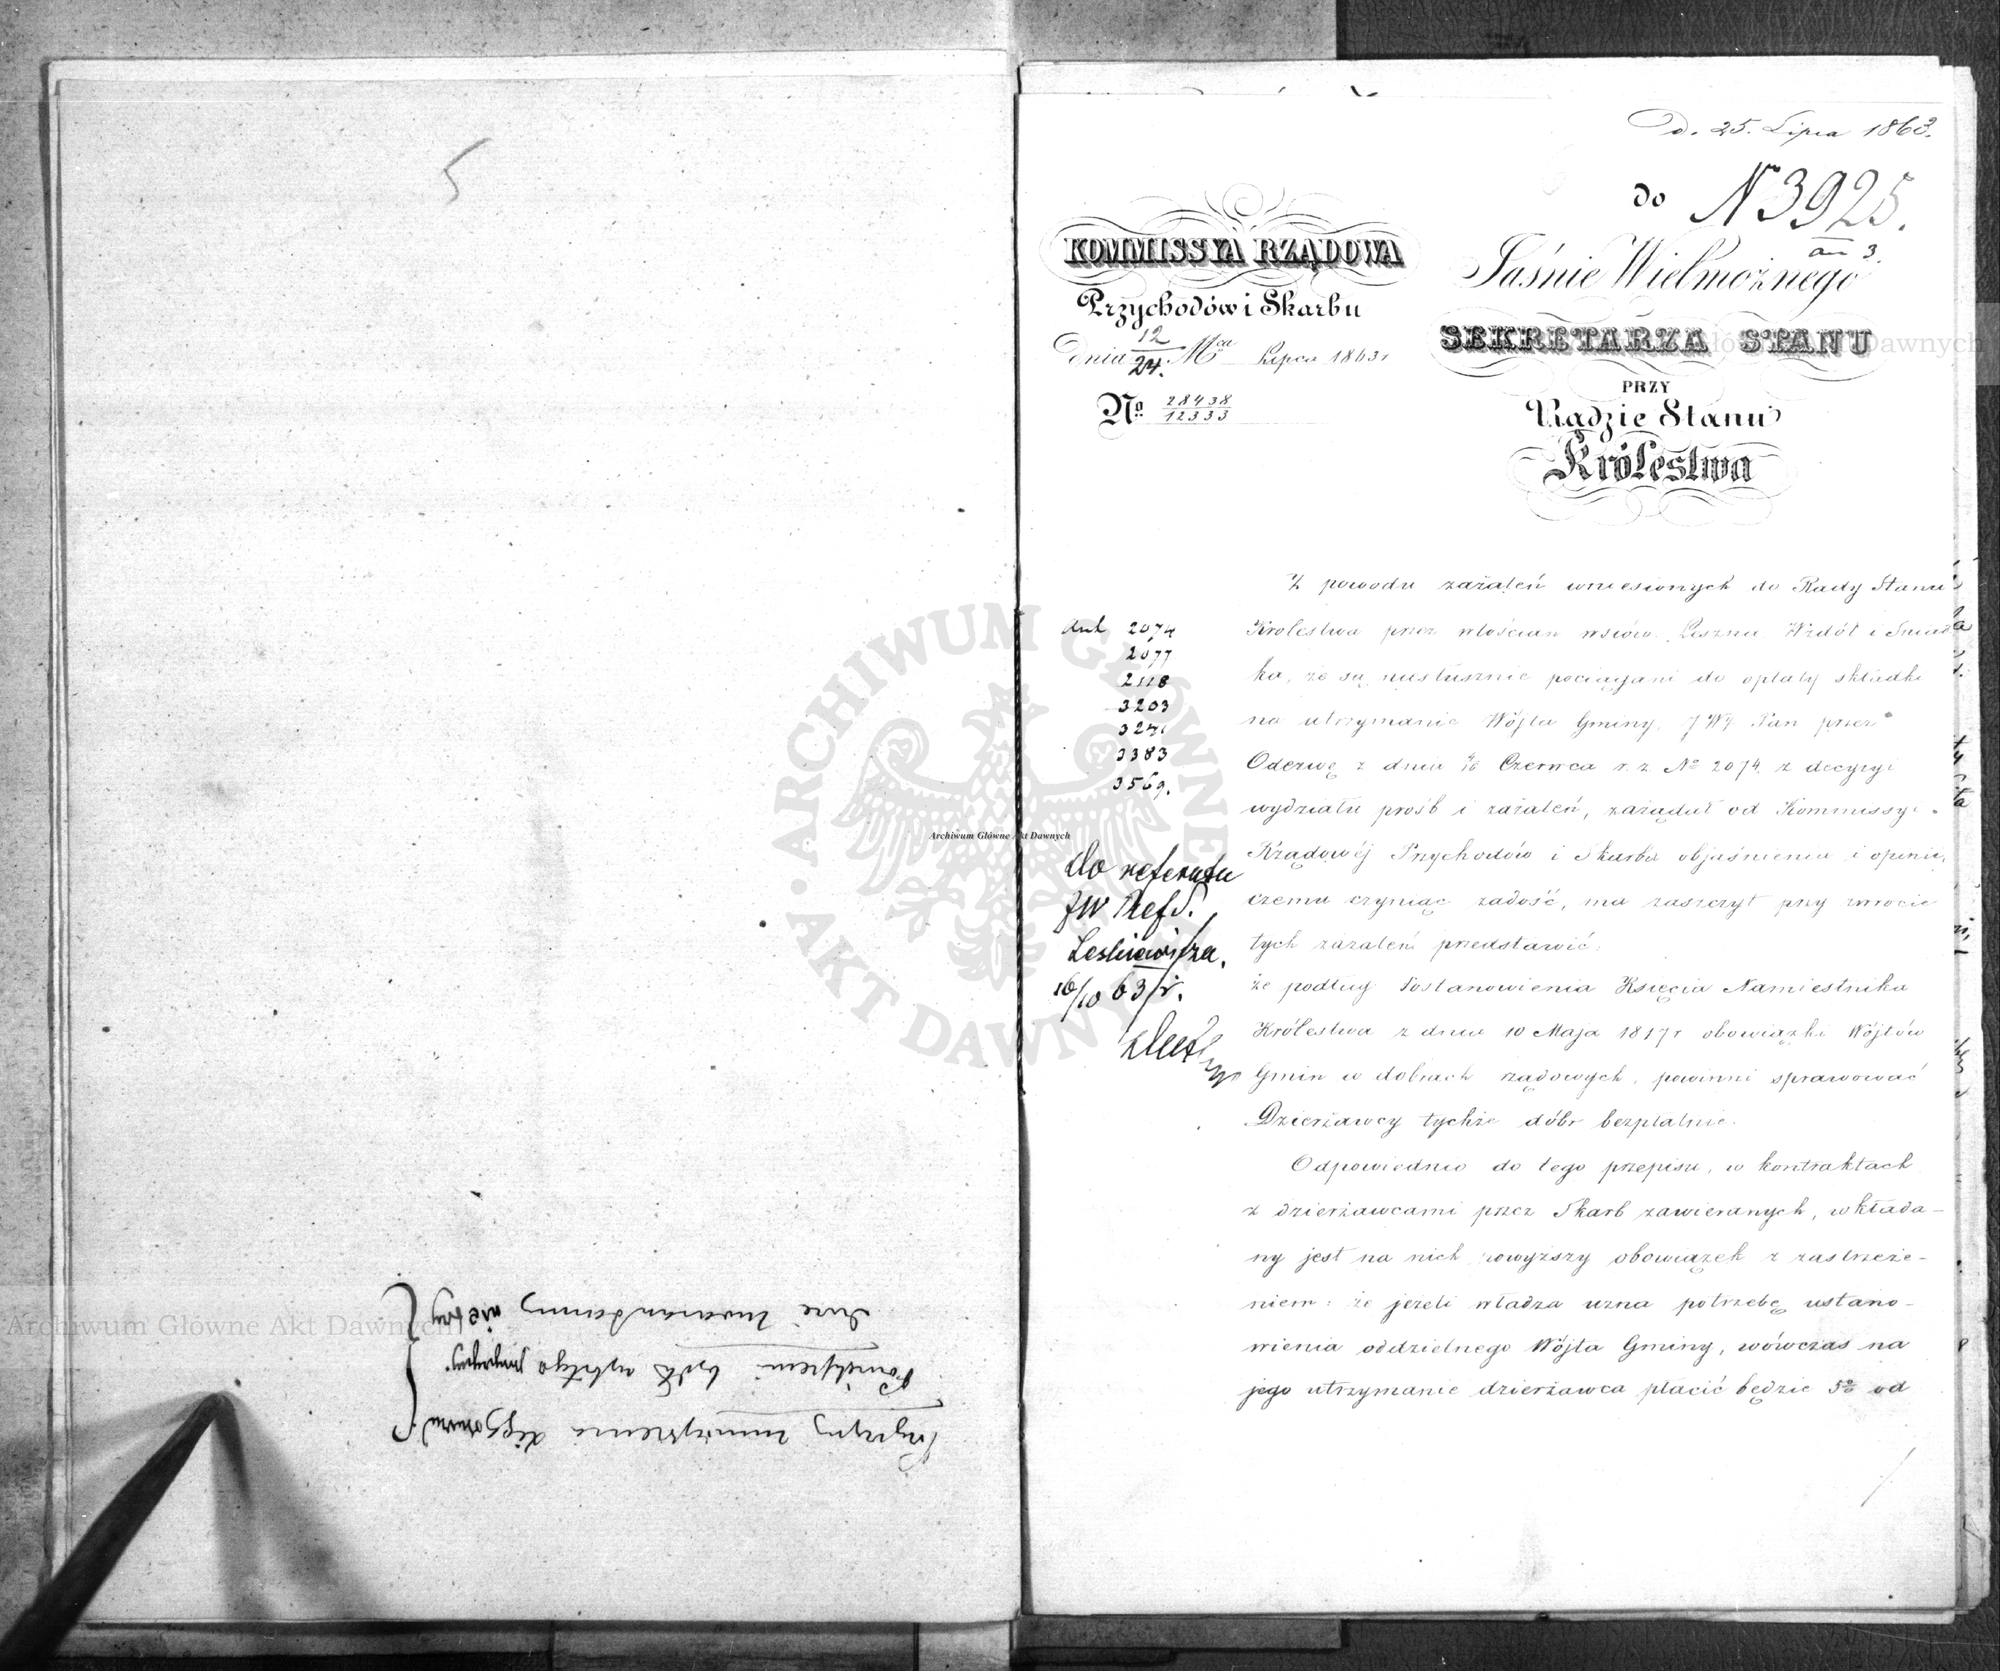 5
D. 25. Lipca 1863.
do N 3925.
an 3.
KOMMISSYA RZĄDOWA
Przychodów i Skarbu
dnia 12/24. Mca Lipca 1863 r
No 28438/12333
Jaśnie Wielmożnego
SEKRETARZA STANU
PRZY
Radzie Stanu
Królestwa
Z powodu zażaleń wniesionych do Rady Stanu
Królestwa przez włościan wsiów: Leszna, Wzdół i Śniad
ka, że są niesłusznie pociągani do opłaty składki
na utrzymanie Wójta Gminy, JW Pan przez
Odezwę z dnia Czerwca r. z. No 2074. z decyzyi
wydziału próśb i zażaleń, zażądał od Kommissyi
Rządowéj Przychodów i Skarbu objaśnienia i opinii,
czemu czyniąc zadość, ma zaszczyt przy zwrocie
tych zażaleń przedstawić:
że podług Postanowienia Księcia Namiestnika
Królestwa z dnia 10 Maja 1817 r obowiązki Wójtów
Gmin w dobrach rządowych, powinni sprawować
Dzierżawcy tychże dóbr bezpłatnie.
Odpowiednio do tego przepisu, w kontraktach
z dzierżawcami przez Skarb zawieranych, wkłada-
ny jest na nich powyższy obowiązek z zastrzeże-
niem: że jeżeli władza uzna potrzebę ustano-
wienia oddzielnego Wójta Gminy, wówczas na
jego utrzymanie dzierżawca płacić będzie 5% od
2074
2077
2118
3203
3271
3383
3569.
do referatu
JW Ref S.
Leskiewicza.
16/10 63 r.
Archiwum Główne Akt Dawnych
ARCHIWUM GŁÓWNE AKT DAWNYCH
Archiwum Główne Akt Dawnych